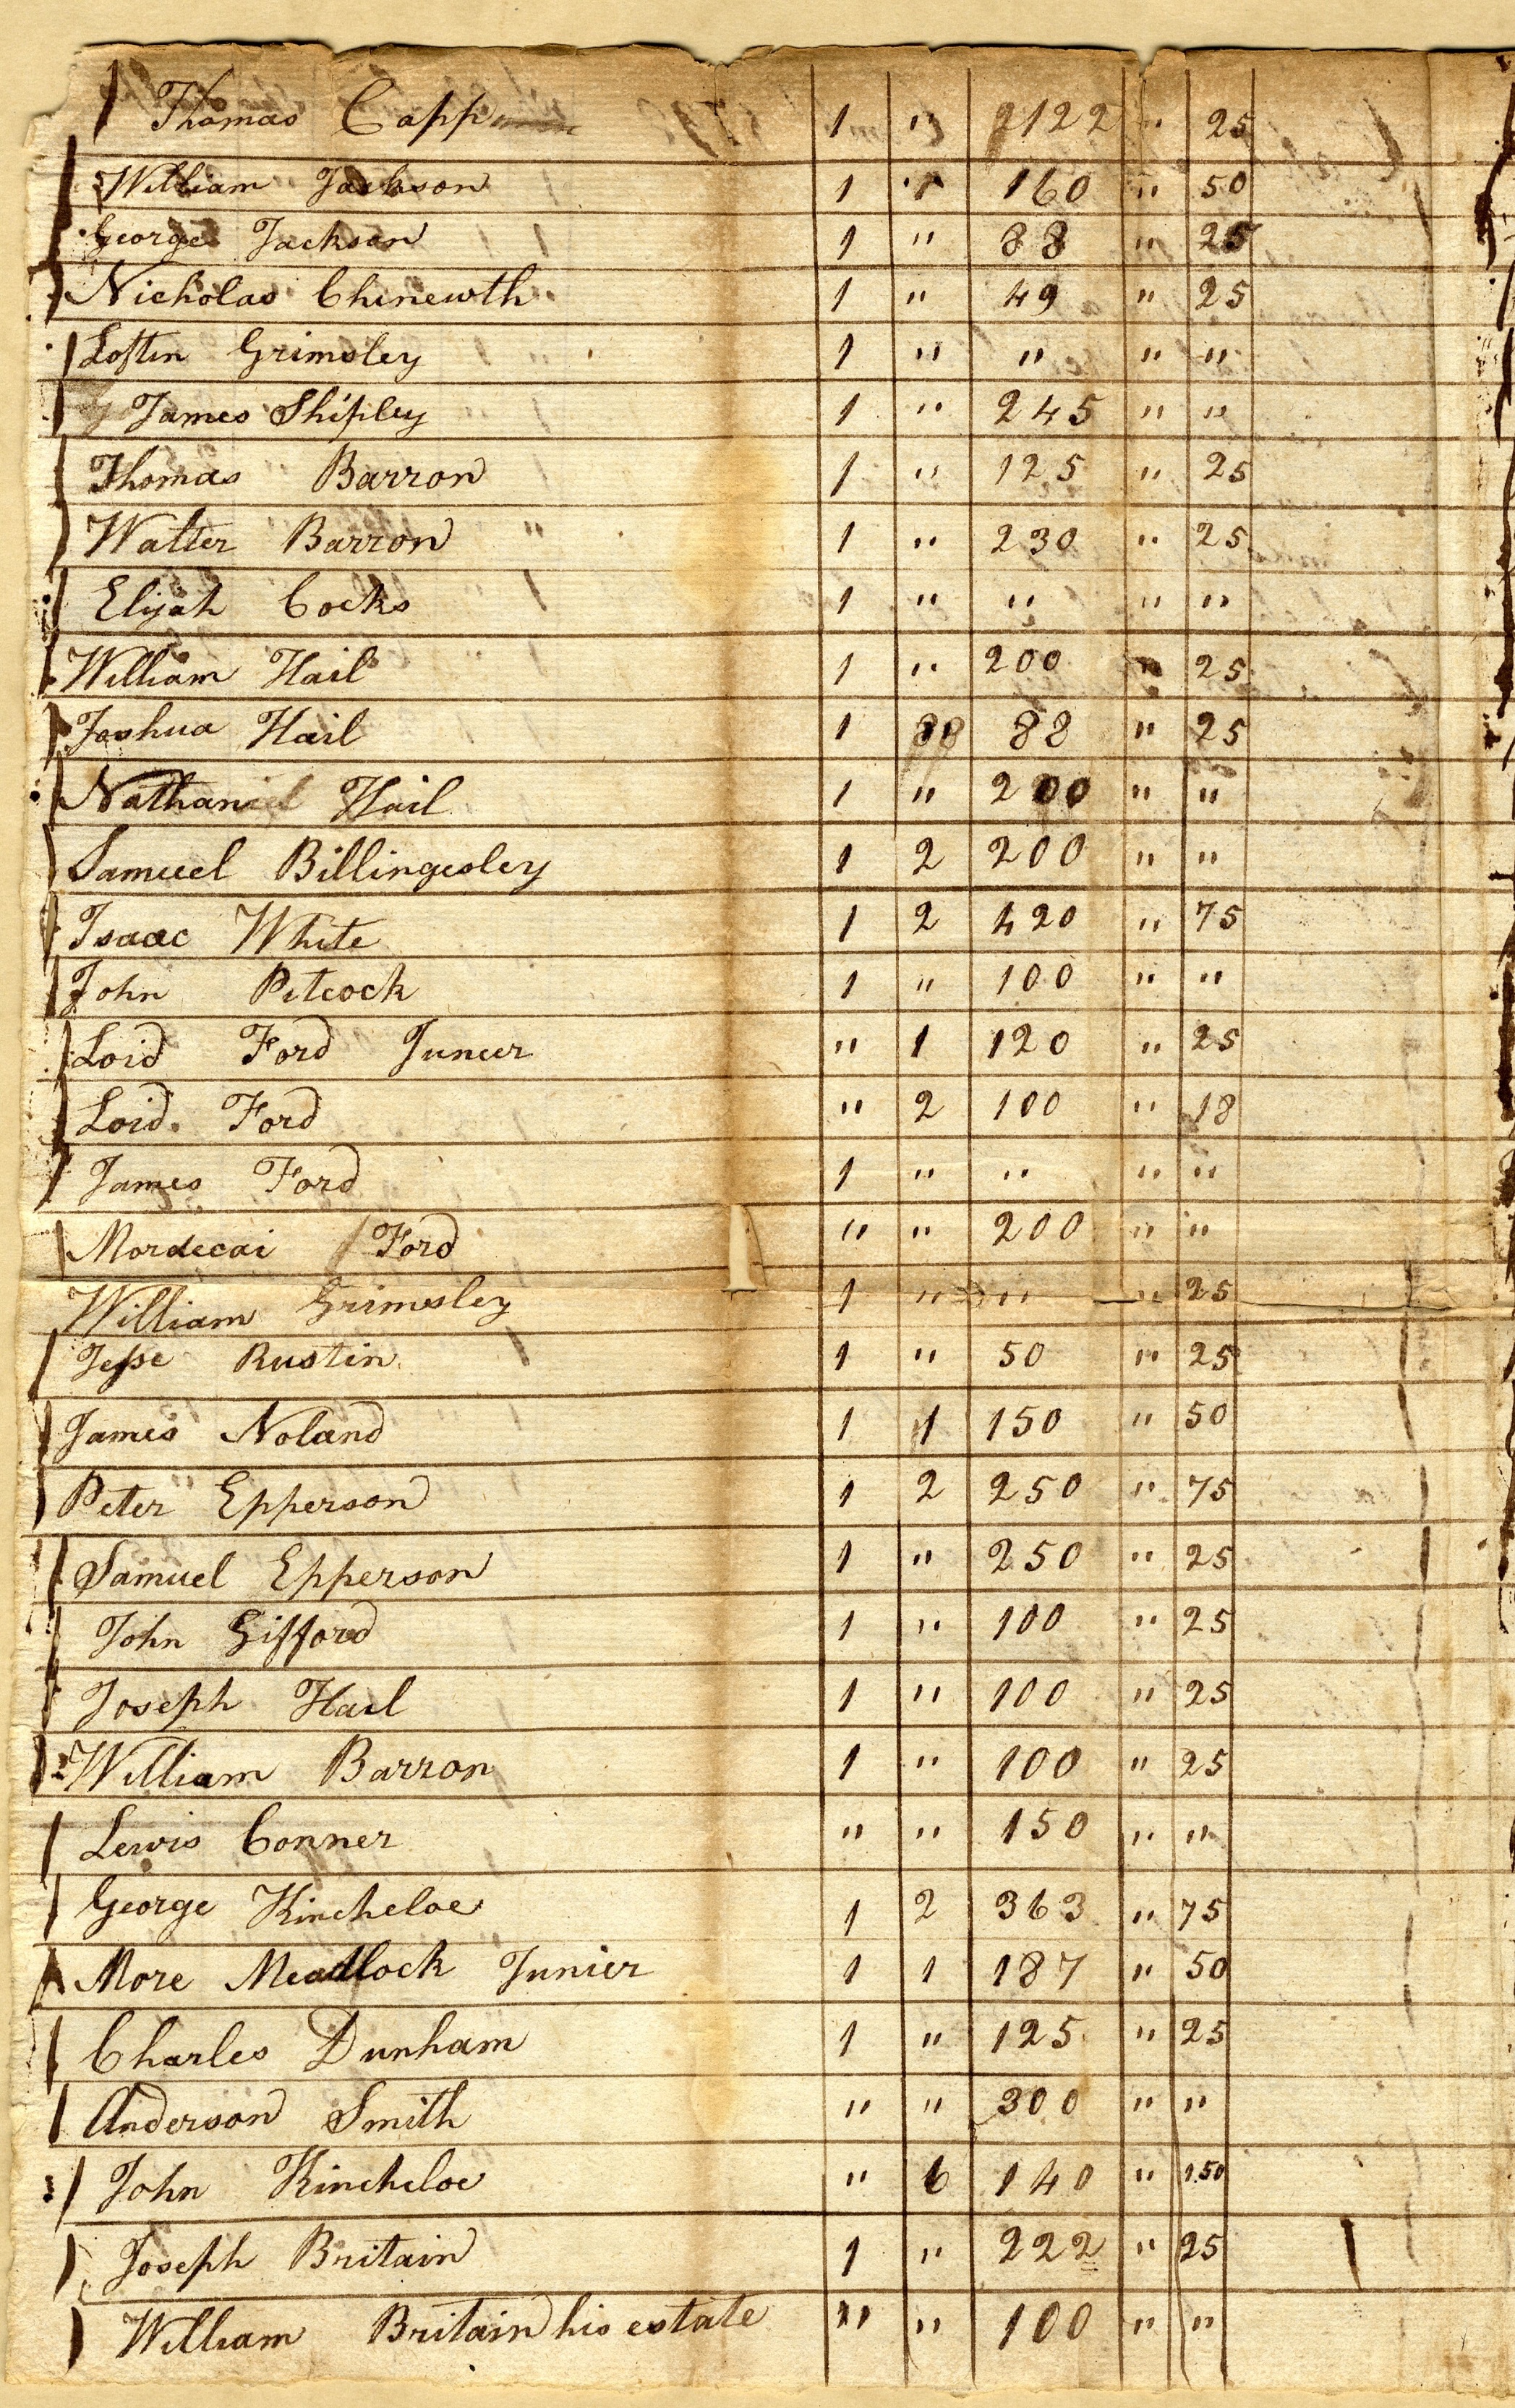 Thomas Capp 1 " 2122 " 25
William Jackson 1 " 160 " 50
George Jackson 1 " 88 " 25
Nicholas Chinewth 1 " 49 " 25
Loftin Grimsley 1 " " " "
James Shipley 1 " 245 " "
Thomas Barron 1 " 125 " 25
Walter Barron 1 " 230 " 25
Elijah Cocks 1 " " " "
William Hail 1 " 200 " 25
Joshua Hail 1 88 " 25
Nathaniel Hail 1 " 200 " "
Samuel Billingesley 1 2 200 " "
Isaac White 1 2 420 " 75
John Pitcock 1 " 100 " "
Loid Ford Juneer " 1 120 " 25
Loid. Ford " 2 100 " 18
James Ford 1 " " " "
Mordecai Ford " " 200 " "
William Grimsley 1 " " " 25
Jesse Rustin 1 " 50 " 25
James Noland 1 1 150 " 50
Peter Epperson 1 2 250 " 75
Samuel Epperson 1 " 250 " 25
John Gifford 1 " 100 " 25
Joseph Hail 1 " 100 " 25
William Barron 1 " 100 " 25
Lewis Conner " " 150 " "
George Kincheloe 1 2 363 " 75
More Meadlock Junier 1 1 187 " 50
Charles Dunham 1 " 125 " 25
Anderson Smith " " 300 " "
John Kincheloe " 6 140 " 1.50
Joseph Britain 1 " 222 " 25
William Britain his estate " " 100 " "